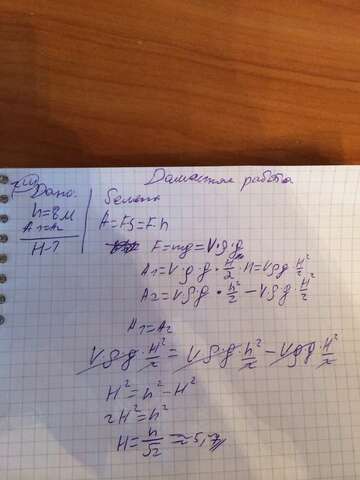 Домашняя работа
Дано:
h=8м
A₁=A₂
H-?
A=FS=F·h
F=mg=V·ρ·g
A₁=V·ρ·g·H/2·H=Vρg H²/2
A₂=Vρg·h²/2-Vρg·H²/2
A₁=A₂
Vρg·H²/2=Vρg·h²/2-Vρg·H²/2
H²=h²-H²
2H²=h²
H=h/√2≈5,7